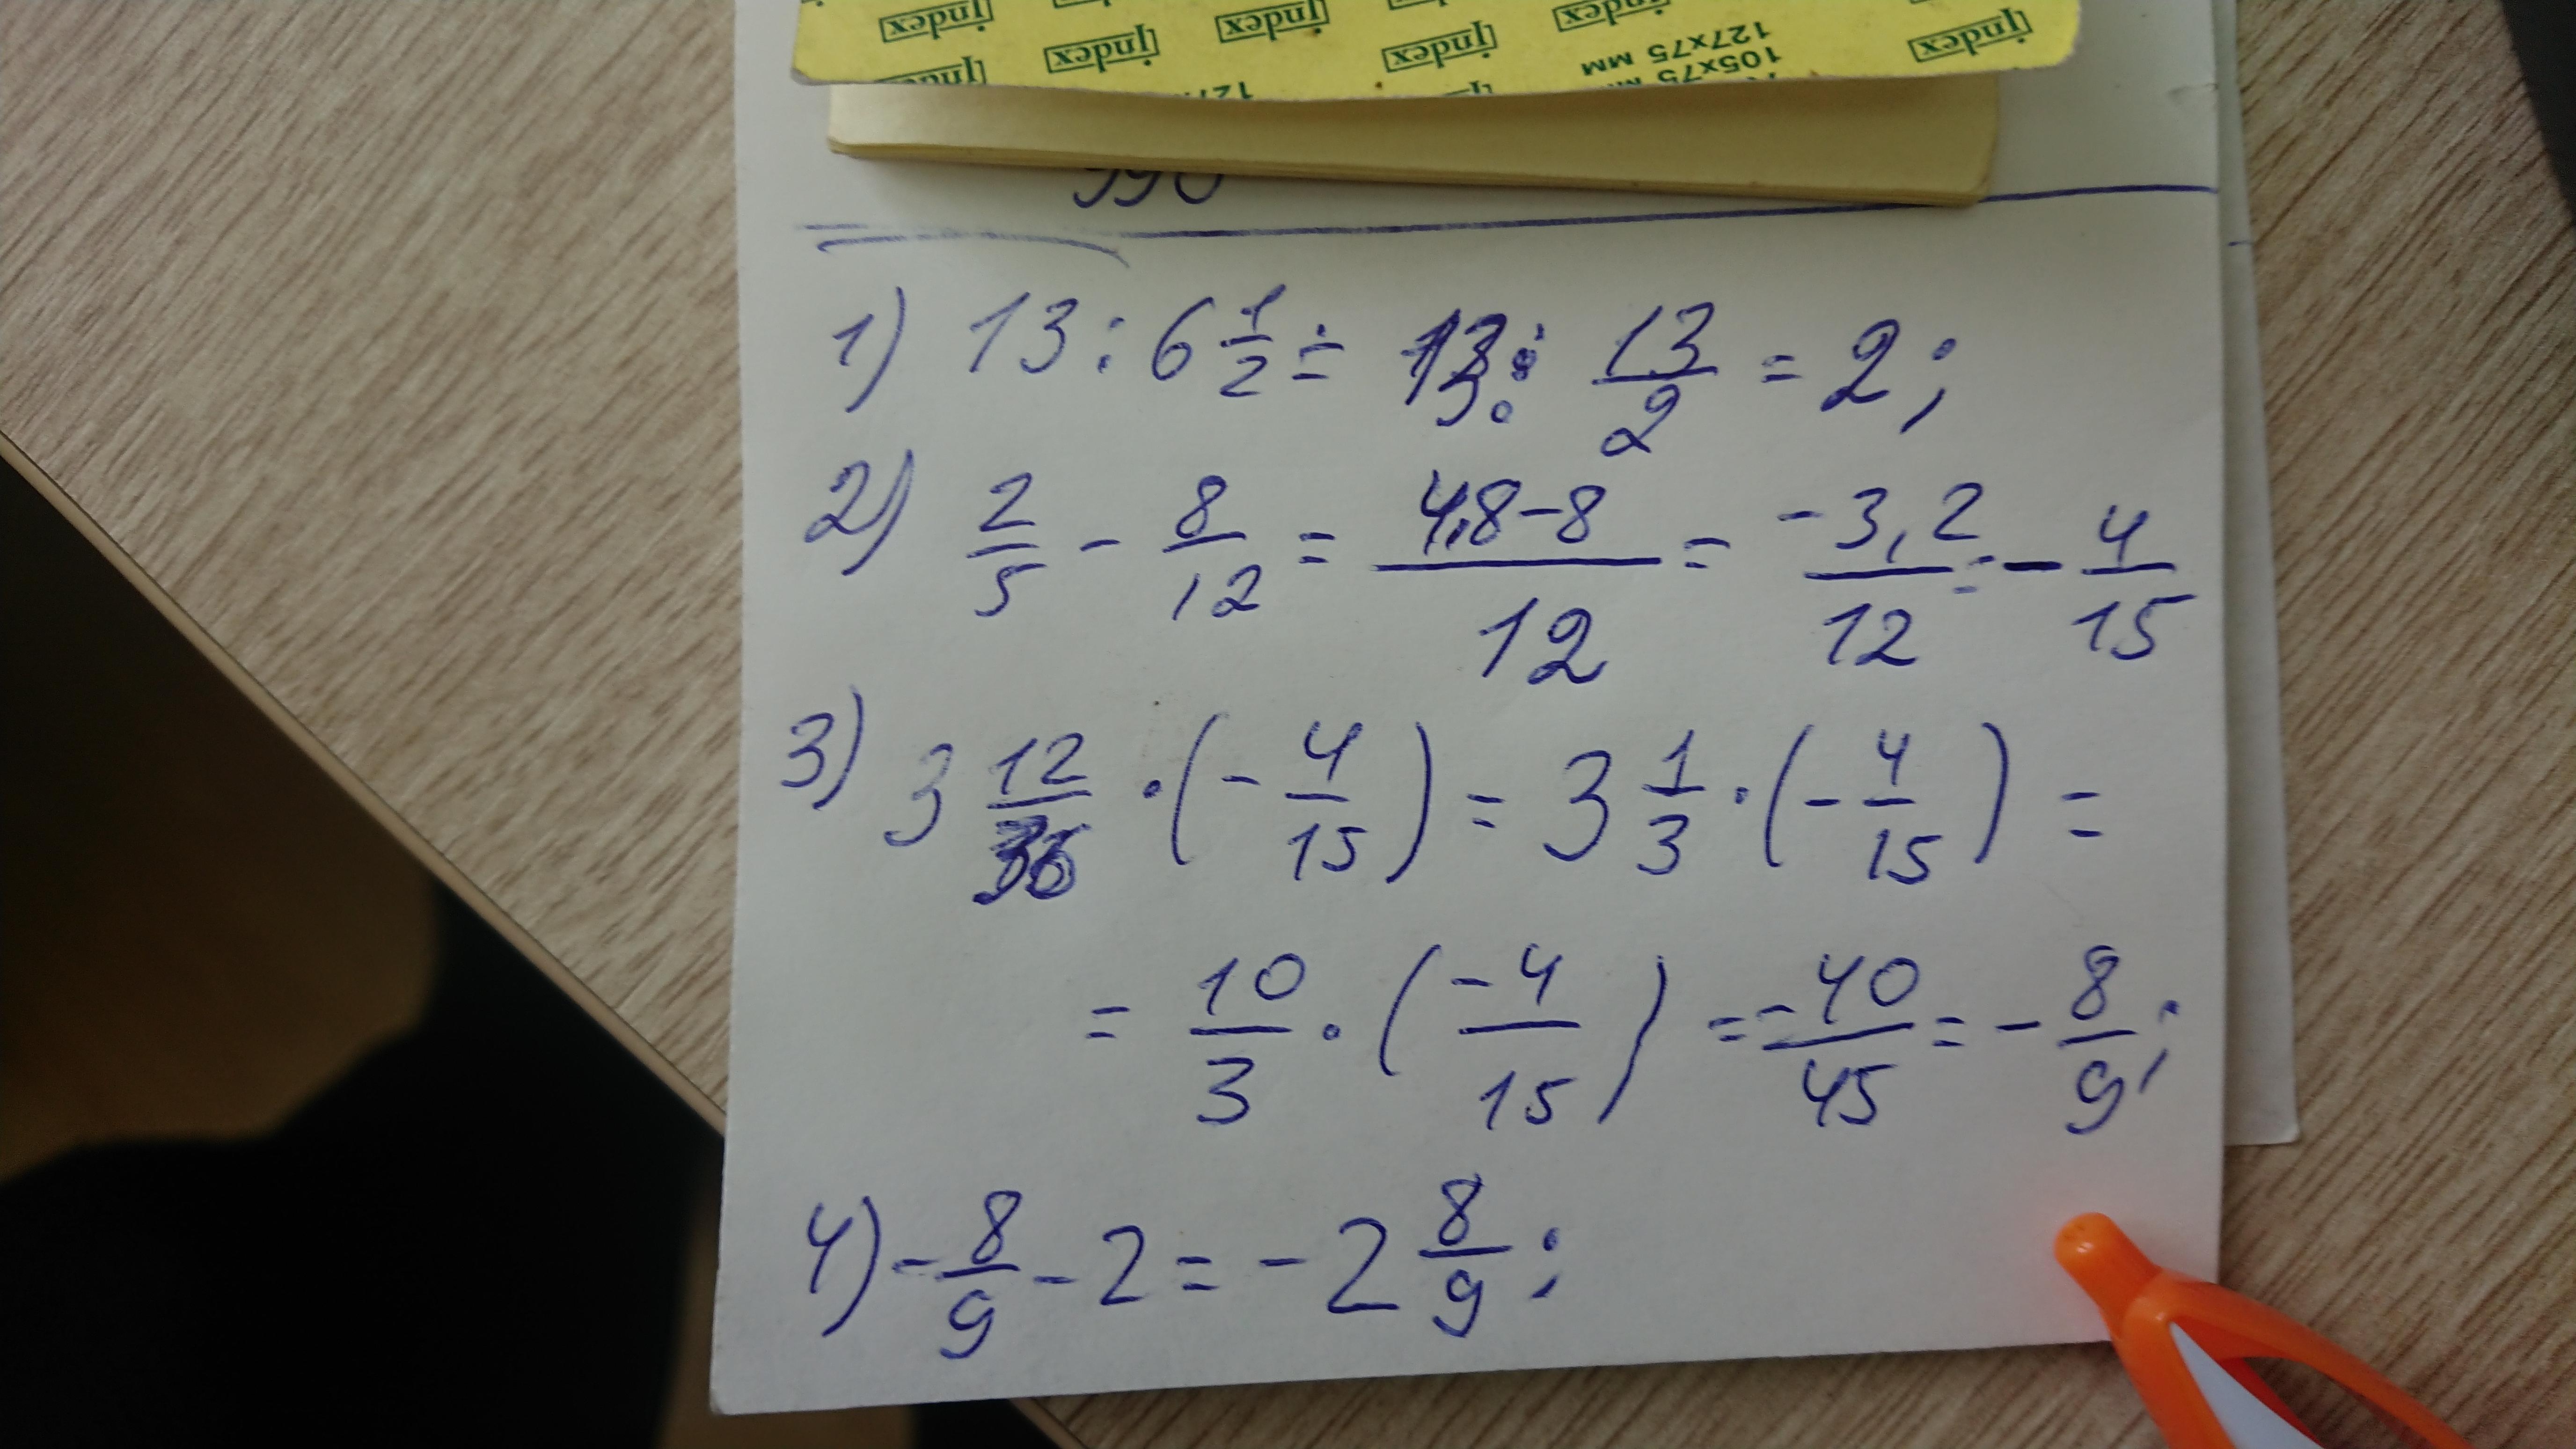 index index index
index index index index
127x75 MM
105x75 MM
1) 13 : 6 1/2 = 13 : 13/2 = 2;
2) 2/5 - 8/12 = (4,8-8)/12 = (-3,2)/12 = - 4/15
3) 3 12/36 · (- 4/15) = 3 1/3 · (- 4/15) =
= 10/3 · (-4/15) = -40/45 = - 8/9;
4) - 8/9 - 2 = - 2 8/9;